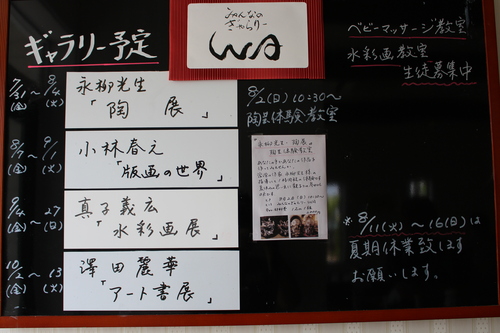 ギャラリー予定
みんなの
ぎゃらりー
wa
ベビーマッサージ教室
水彩画教室
生徒募集中
7/31(金)〜8/4(火)
永柳光生
「陶展」
8/2(日)10:30〜
陶芸体験教室
8/7(金)〜9/1(火)
小林春之
「版画の世界」
9/4(金)〜27(日)
真子義広
「水彩画展」
10/2(金)〜13(火)
澤田麗華
「アート書展」
永柳光生 陶展
陶芸体験教室
*8/11(火)〜16(日)は
夏期休業致します
お願いします。